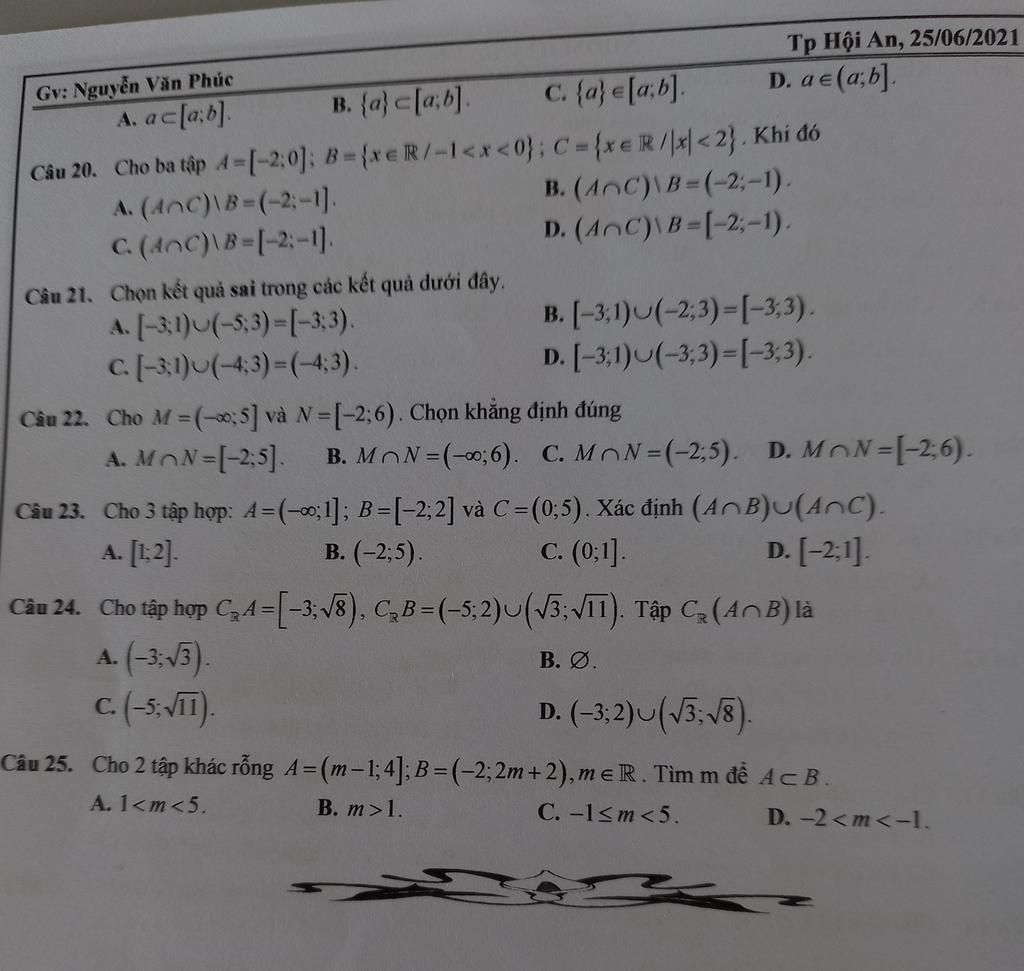 Tp Hội An, 25/06/2021
Gv: Nguyễn Văn Phúc
A. a⊂[a;b]. B. {a}⊂[a;b]. C. {a}∈[a;b]. D. a∈(a;b].
Câu 20. Cho ba tập A=[−2;0]; B={x∈ℝ/−1<x<0}; C={x∈ℝ/|x|<2}. Khi đó
A. (A∩C)\B=(−2;−1]. B. (A∩C)\B=(−2;−1).
C. (A∩C)\B=[−2;−1]. D. (A∩C)\B=[−2;−1).
Câu 21. Chọn kết quả sai trong các kết quả dưới đây.
A. [−3;1)∪(−5;3)=[−3;3). B. [−3;1)∪(−2;3)=[−3;3).
C. [−3;1)∪(−4;3)=(−4;3). D. [−3;1)∪(−3;3)=[−3;3).
Câu 22. Cho M=(−∞;5] và N=[−2;6). Chọn khẳng định đúng
A. M∩N=[−2;5]. B. M∩N=(−∞;6). C. M∩N=(−2;5). D. M∩N=[−2;6).
Câu 23. Cho 3 tập hợp: A=(−∞;1]; B=[−2;2] và C=(0;5). Xác định (A∩B)∪(A∩C).
A. [1;2]. B. (−2;5). C. (0;1]. D. [−2;1].
Câu 24. Cho tập hợp C_ℝA=[−3;√8), C_ℝB=(−5;2)∪(√3;√11). Tập C_ℝ(A∩B) là
A. (−3;√3). B. ∅.
C. (−5;√11). D. (−3;2)∪(√3;√8).
Câu 25. Cho 2 tập khác rỗng A=(m−1;4]; B=(−2;2m+2), m∈ℝ. Tìm m để A⊂B.
A. 1<m<5. B. m>1. C. −1≤m<5. D. −2<m<−1.